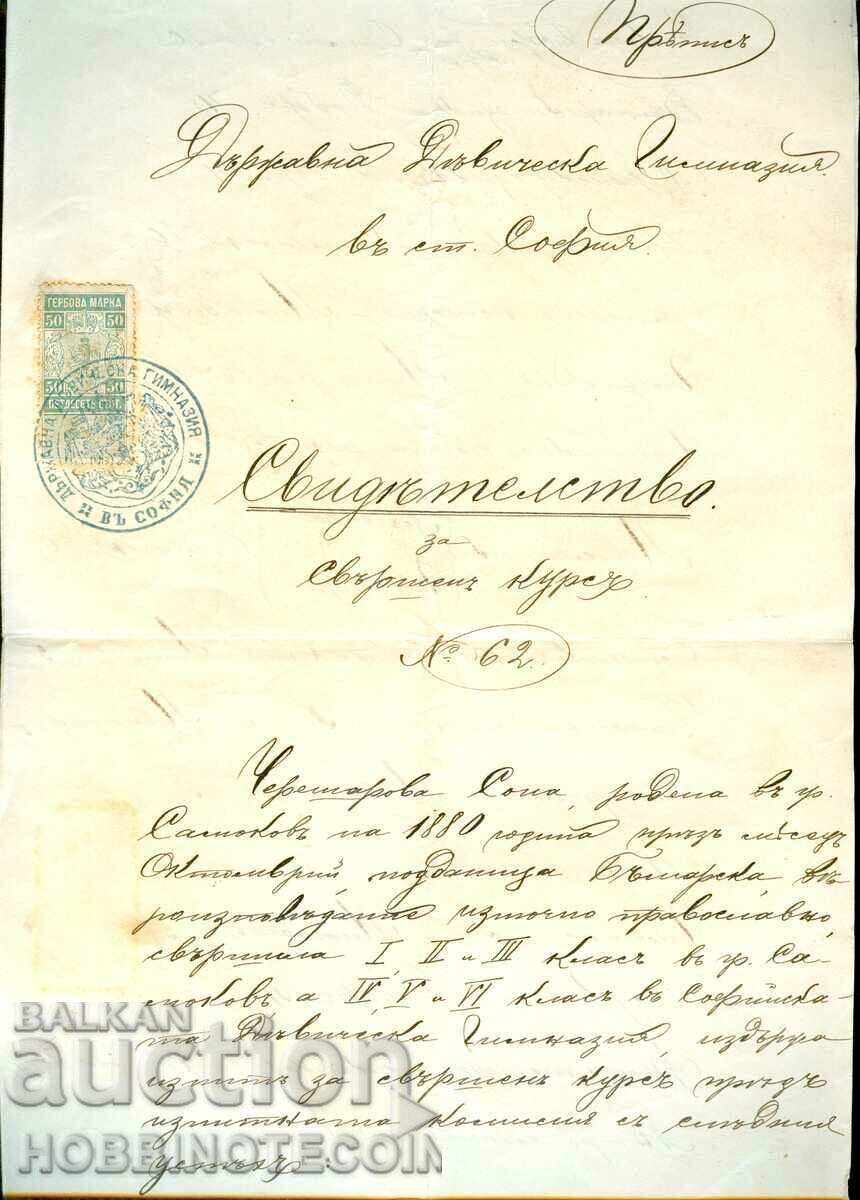 Прѣписъ
Държавна Дѣвическа Гимназия.
въ ст. София.
ГЕРБОВА МАРКА
50 50
50 50
ПЕТДЕСЕТЬ СТОТ.
ДЪРЖАВНА ДѢВИЧЕСКА ГИМНАЗИЯ
ВЪ СОФИЯ
Свидѣтелство.
за
свършенъ курсъ.
№ 62.
Черешарова Сона, родена въ гр.
Самоковъ на 1880 година прѣзъ мѣсецъ
Октомврий, подданица Българска, въ-
роизповѣдание източно православно,
свършила I, II и III класъ въ гр. Са-
моковъ а IV, V и VI класъ въ Софийска-
та Дѣвическа Гимназия, издържа
изпитъ за свършенъ курсъ прѣдъ
изпитната комисия съ слѣдния
успѣхъ:
BALKAN
auction
HOBBINOTECOIN